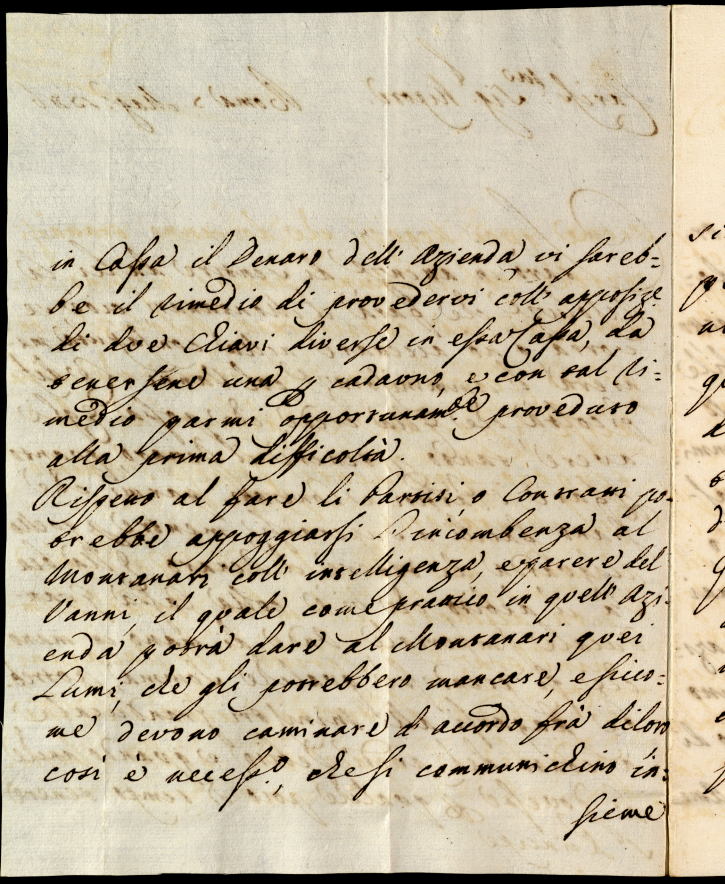 in Cassa il Denaro dell' Azienda vi sareb=
be il rimedio di provedervi coll' apposize.
di due chiavi diverse in essa Cassa, da
tenersene una p cadauno, e con tal ri=
medio parmi opportunamte. proveduto
alla prima difficoltà.
Rispetto al fare li Partiti, o Contratti po=
trebbe appoggiarsi l'incombenza al
Montanari coll' intelligenza, e parere del
Vanni, il quale come pratico in quell' Azi=
enda potrà dare al Montanari quei
Lumi, che gli potrebbero mancare, e sicco=
me devono caminare d' accordo frà diloro
così è necesso., che si communichino in=
sieme